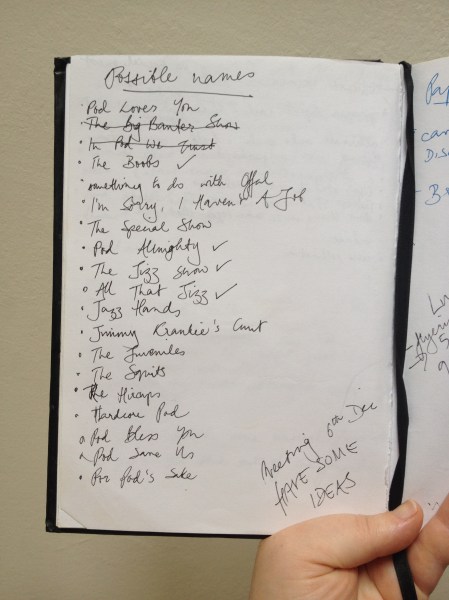 Possible names
· Pod Loves You
· The Big Banter Show
· In Pod We Trust
· The Boobs ✓
· something to do with Offal
· I'm Sorry, I Haven't A Job
· The Special Show
· Pod Almighty ✓
· The Jizz Show ✓
· All That Jizz ✓
· Jazz Hands
· Jimmy Krankie's Cunt
· The Juveniles
· The Squits
· The Hiccups
· Hardcore Pod
· Pod Bless You
· Pod Save Us
· For Pod's Sake
Meeting 6th Dec
HAVE SOME
IDEAS